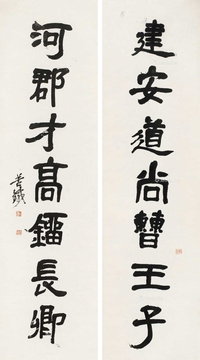 建安道尚曹王子
河郡才高鎦長卿
苦鐵